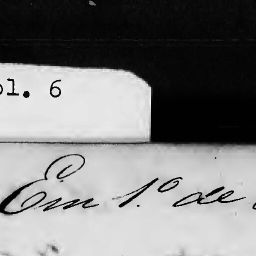 ol. 6
Em 1.º de